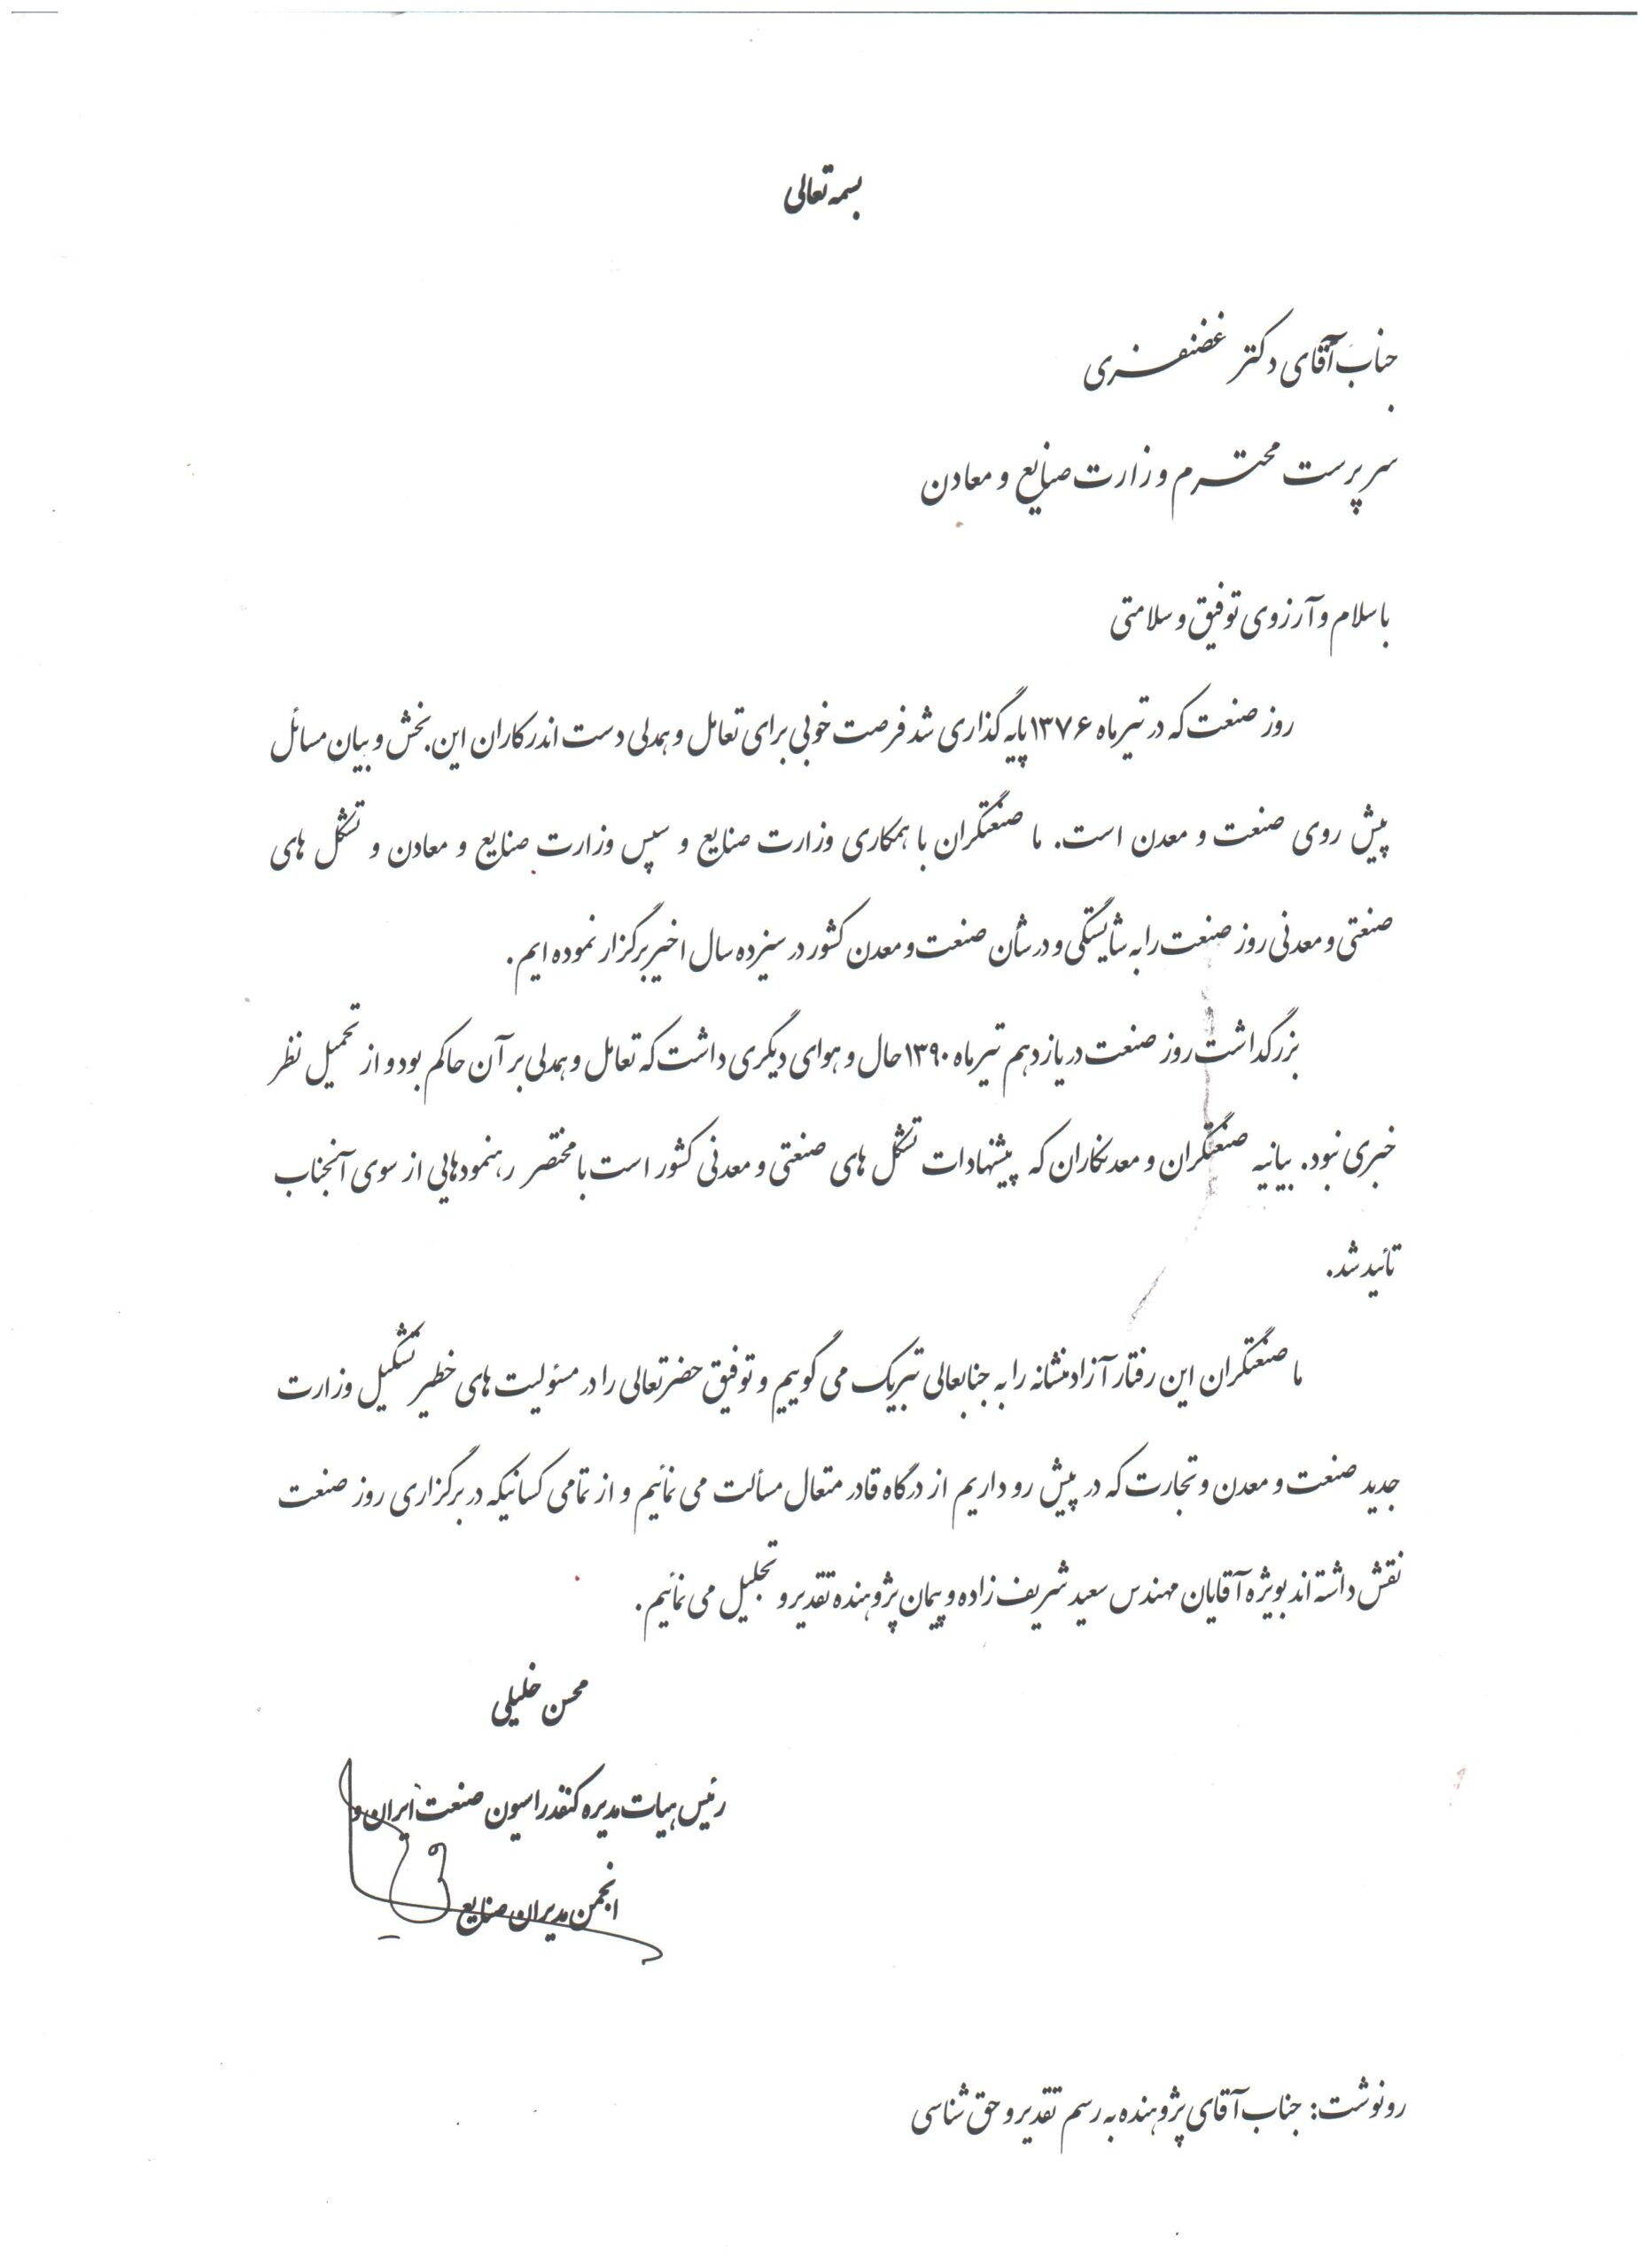 بسمه تعالی
جناب آقای دکتر غضنفری
سرپرست محترم وزارت صنایع و معادن
با سلام و آرزوی توفیق و سلامتی
روز صنعت که در تیرماه ۱۳۷۶ پایه گذاری شد فرصت خوبی برای تعامل و همدلی دست اندرکاران این بخش و بیان مسائل
پیش روی صنعت و معدن است. ما صنعتگران با همکاری وزارت صنایع و سپس وزارت صنایع و معادن و تشکل های
صنعتی و معدنی روز صنعت را به شایستگی و در شأن صنعت و معدن کشور در سیزده سال اخیر برگزار نموده ایم.
بزرگداشت روز صنعت در یازدهم تیرماه ۱۳۹۰ حال و هوای دیگری داشت که تعامل و همدلی بر آن حاکم بود و از تحمیل نظر
خبری نبود. بیانیه صنعتگران و معدنکاران که پیشنهادات تشکل های صنعتی و معدنی کشور است با مختصر رهنمودهایی از سوی آنجناب
تائید شد.
ما صنعتگران این رفتار آزادمنشانه را به جنابعالی تبریک می گوییم و توفیق حضرتعالی را در مسئولیت های خطیر تشکیل وزارت
جدید صنعت و معدن و تجارت که در پیش رو داریم از درگاه قادر متعال مسألت می نمائیم و از تمامی کسانیکه در برگزاری روز صنعت
نقش داشته اند بویژه آقایان مهندس سعید شریف زاده و پیمان پژوهنده تقدیر و تجلیل می نمائیم.
محسن خلیلی
رئیس هیات مدیره کنفدراسیون صنعت ایران و
انجمن مدیران صنایع
رونوشت: جناب آقای پژوهنده به رسم تقدیر و حق شناسی